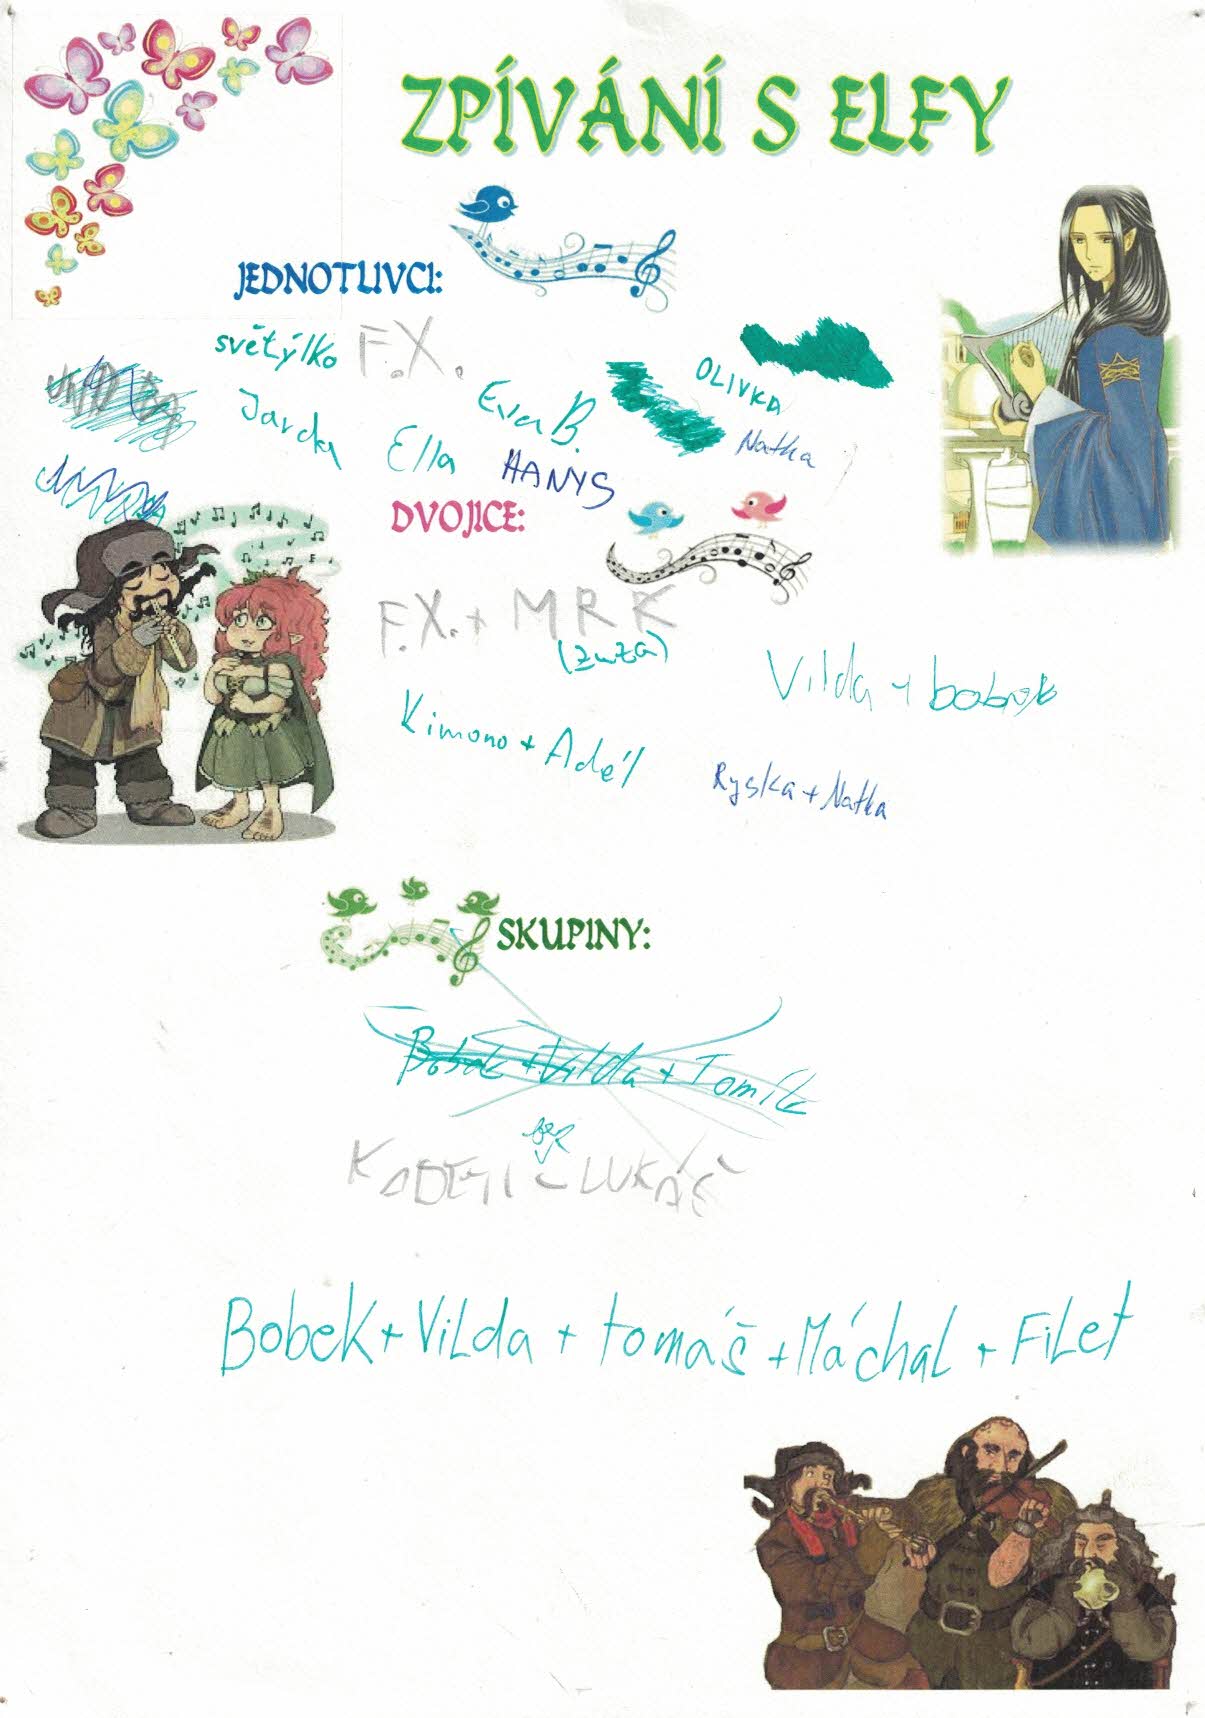 ZPÍVÁNÍ S ELFY
JEDNOTLIVCI:
světýlko F.X.
OLIVKA
Jarda Eva B.
Ella HANYS Natka
DVOJICE:
F.X. + MRK
(zuza)
Vilda + bobek
Kimono + Adél
Ryska + Natka
SKUPINY:
Bobek + Vilda + Tomík
LUKÁŠ
Bobek + Vilda + tomáš + Máchal + Filet